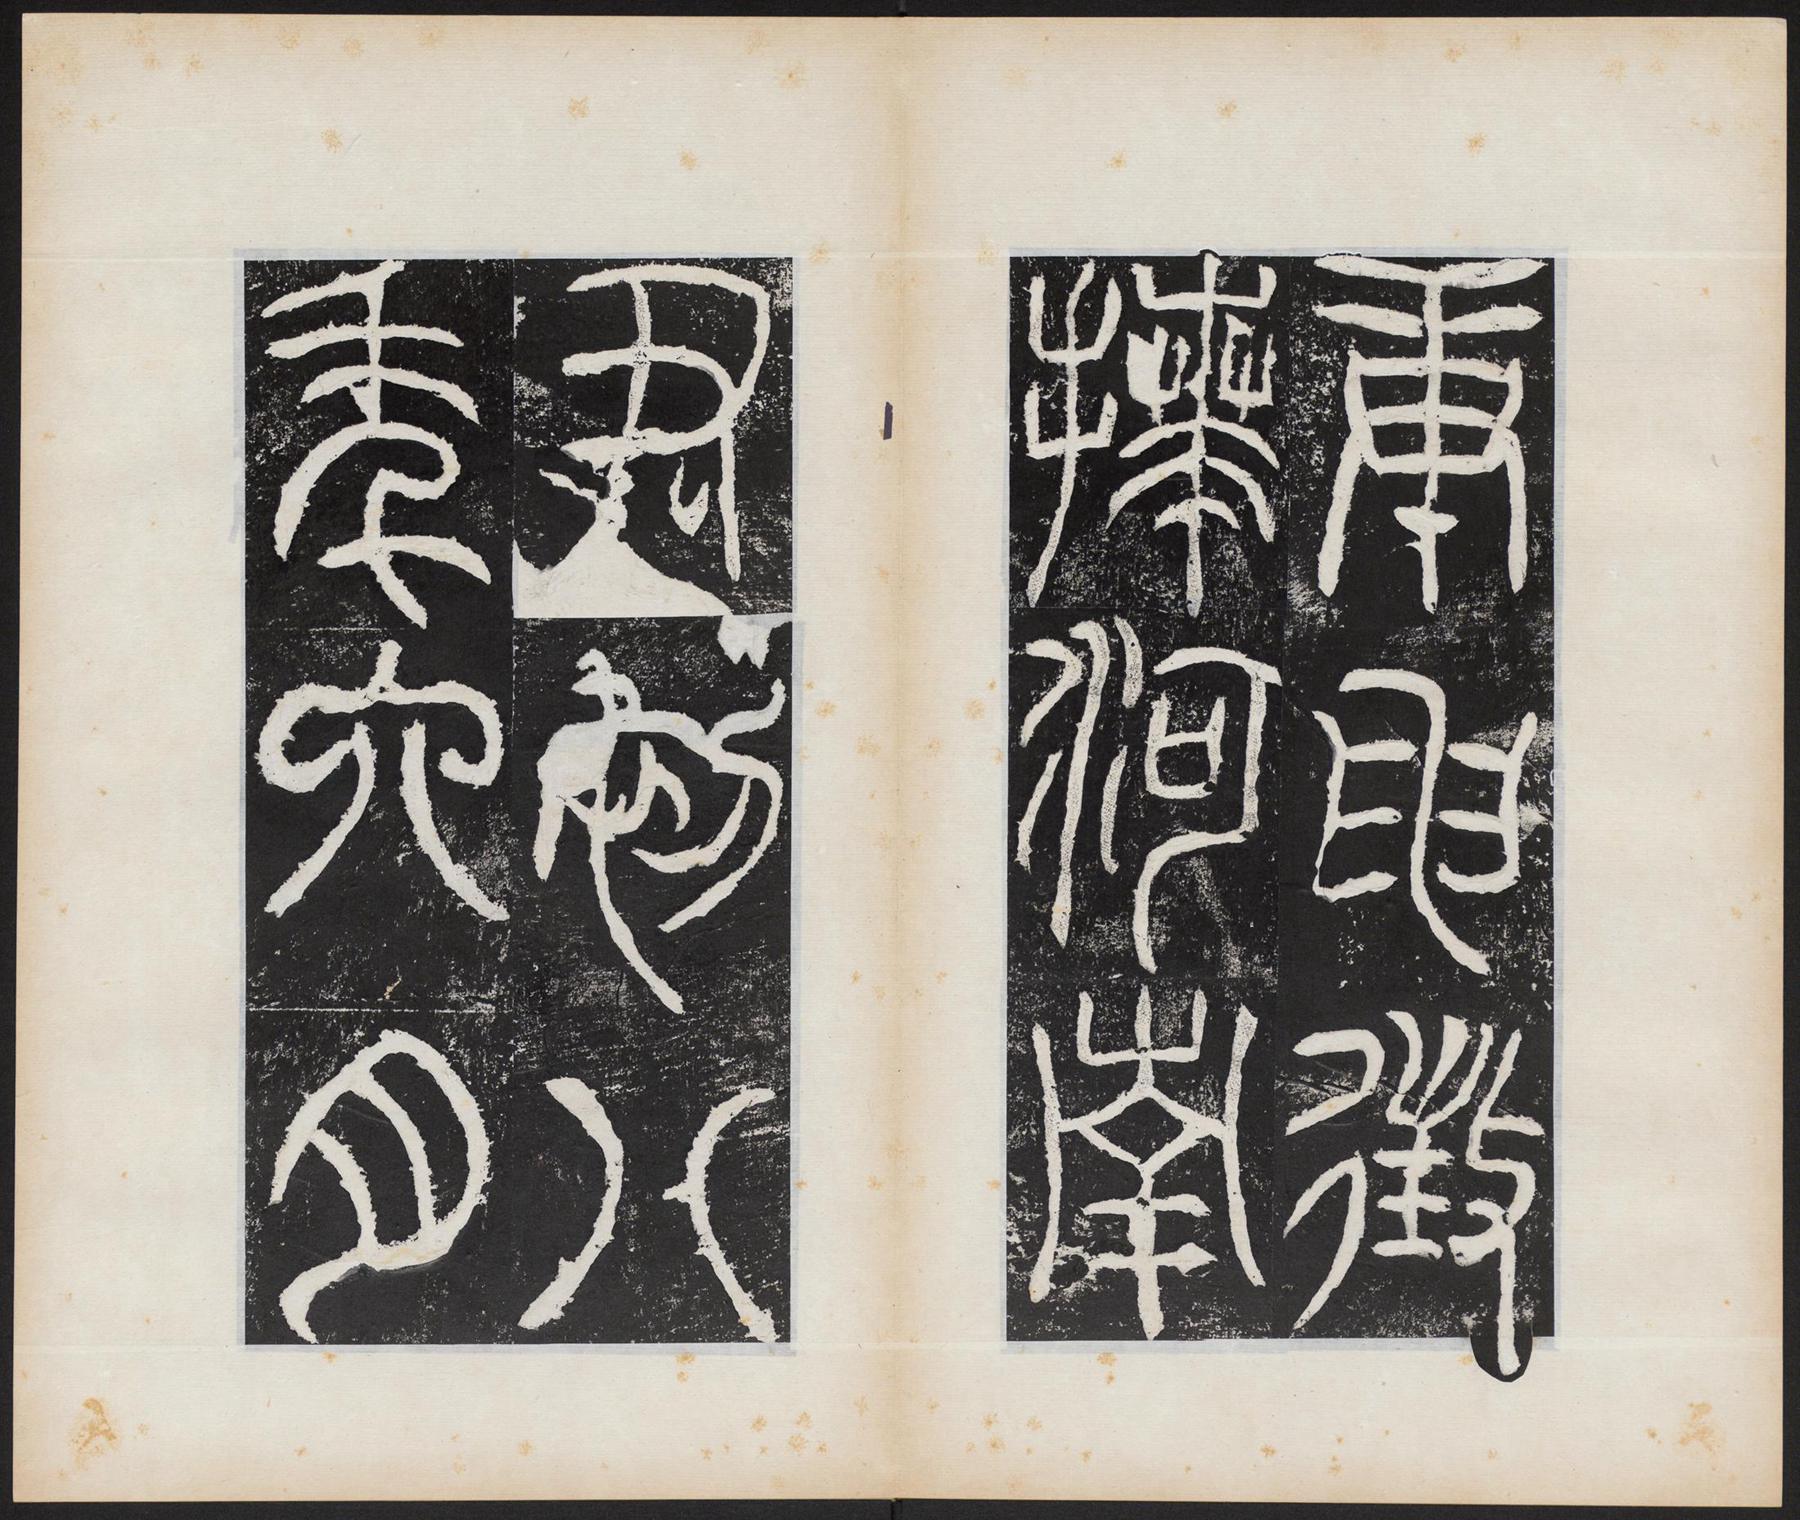 庚申徵
拜河南
尹初八
年六月